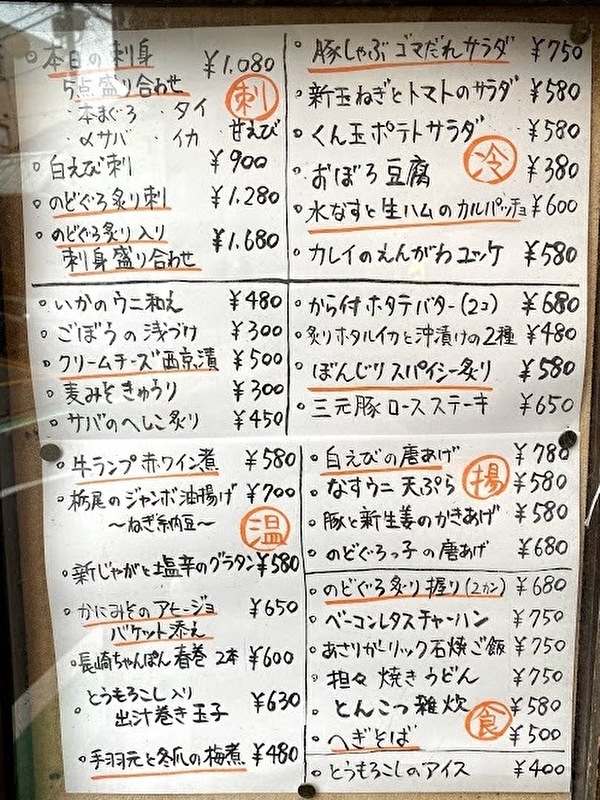 本日の刺身 ¥1,080
5点盛り合わせ
・本まぐろ ・タイ
・〆サバ ・イカ 甘えび
刺
白えび刺 ¥900
のどぐろ炙り刺 ¥1,280
のどぐろ炙り入り
刺身盛り合わせ ¥1,680
いかのウニ和え ¥480
ごぼうの浅づけ ¥300
クリームチーズ西京漬 ¥500
麦みそきゅうり ¥300
サバのへしこ炙り ¥450
牛ランプ赤ワイン煮 ¥580
栃尾のジャンボ油揚げ ¥700
〜ねぎ納豆〜
温
新じゃがと塩辛のグラタン ¥580
かにみそのアヒージョ ¥650
バケット添え
長崎ちゃんぽん春巻 2本 ¥600
とうもろこし入り
出汁巻き玉子 ¥630
手羽元と冬瓜の梅煮 ¥480
豚しゃぶゴマだれサラダ ¥750
新玉ねぎとトマトのサラダ ¥580
くん玉ポテトサラダ ¥580
冷
おぼろ豆腐 ¥380
水なすと生ハムのカルパッチョ ¥600
カレイのえんがわユッケ ¥580
から付ホタテバター(2コ) ¥680
炙りホタルイカと沖漬けの2種 ¥480
ぼんじりスパイシー炙り ¥580
三元豚ロースステーキ ¥650
白えびの唐あげ ¥780
揚
なすウニ天ぷら ¥580
豚と新生姜のかきあげ ¥580
のどぐろっ子の唐あげ ¥680
のどぐろ炙り握り(2カン) ¥680
ベーコンレタスチャーハン ¥750
あさりガーリック石焼ご飯 ¥750
担々焼きうどん ¥750
とんこつ雑炊 ¥580
食
へぎそば ¥500
とうもろこしのアイス ¥400